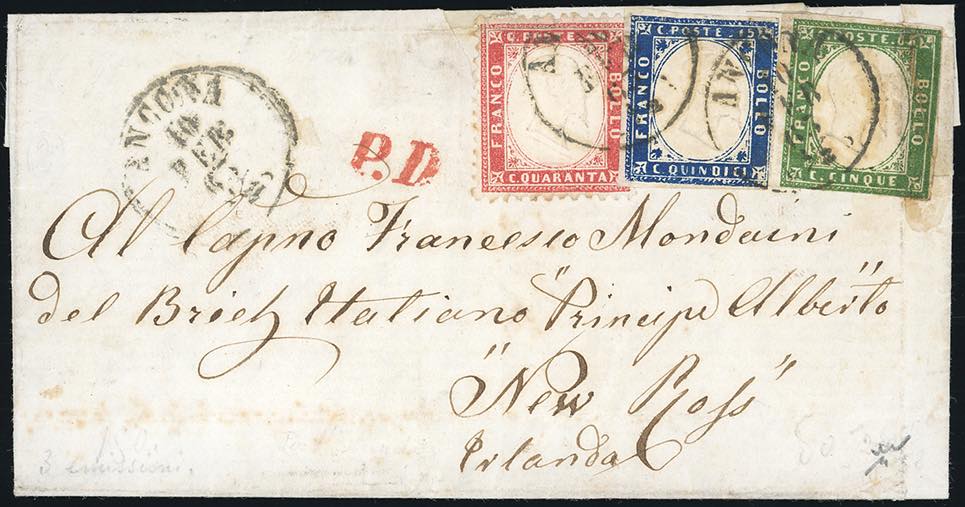 C. POSTE. 15
C. POSTE. 05
FRANCO
BOLLO
C. QUARANTA
FRANCO
BOLLO
C. QUINDICI
FRANCO
BOLLO
C. CINQUE
ANCONA
10
P.D
Al Capno Francesco Mondaini
del Brich Italiano "Principe Alberto"
"New Ross"
Irlanda
3 emissioni.